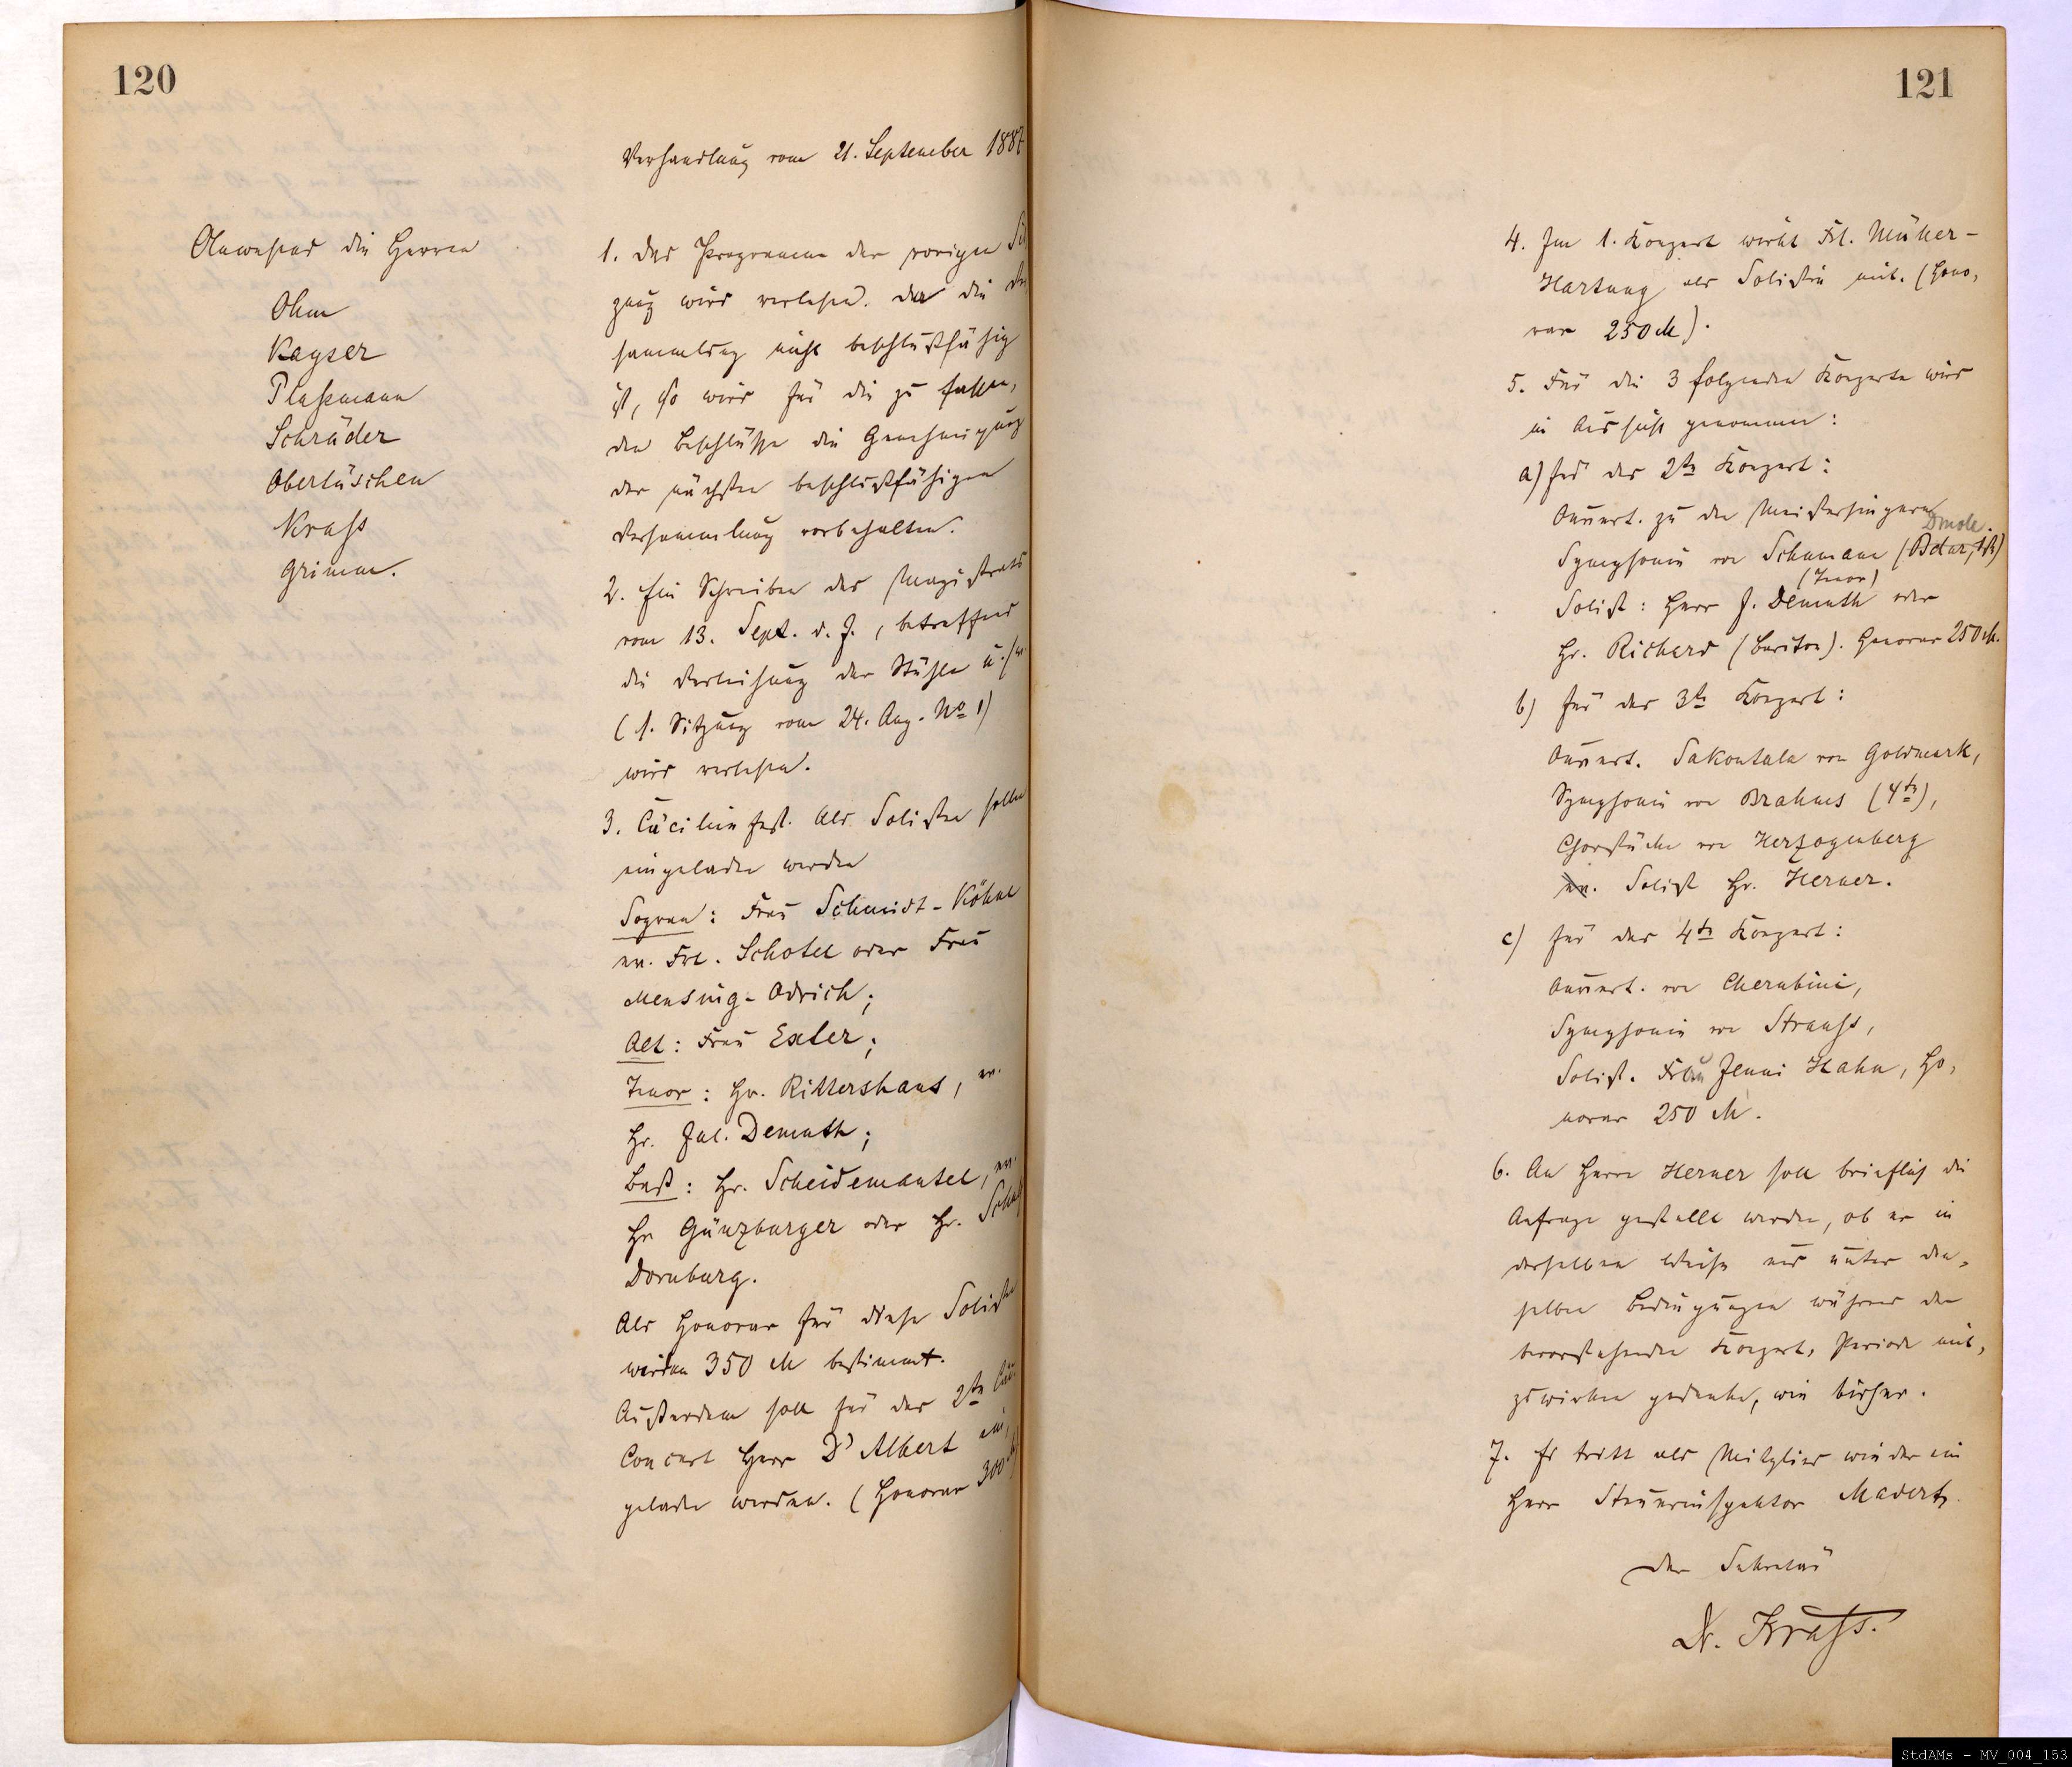 120
Verhandlung vom 21. September 1887
Anwesend die Herren
Ohm
Kayser
Plaßmann
Schräder
Obertüschen
Krass
Grimm.
1. Das Programm der vorigen Sit
zung wird verlesen. Da die Ver
sammlung nicht beschlußfähig
ist, so wird für die zu fassen,
den Beschlüsse die Genehmigung
der nächsten beschlußfähigen
Versammlung vorbehalten.
2. Ein Schreiben des Magistrats
vom 13. Sept. d. J., betreffend
die Verleihung der Stühle u.s.w.
(s. Sitzung vom 24. Aug. No 1)
wird verlesen.
3. Cäcilienfest. Als Solisten sollen
eingeladen werden
Sopran: Frau Schmidt-Köhne
ev. Frl. Schotel oder Frau
Mensing-Odrich;
Alt: Frau Exter;
Tenor: Hr. Rittershaus, ev.
Hr. Jul. Demuth;
Baß: Hr. Scheidemantel, ev.
Hr Günzburger oder Hr.
Dornburg.
Als Honorar für diese Solisten
werden 350 M bestimmt.
Außerdem soll für das 2te Cäc.
Concert Herr D'Albert ein,
geladen werden. (Honorar 300 M)
121
4. Im 1. Konzert wirkt Frl. Müller-
Hartung als Solistin mit. (Hono,
rar 250 M).
5. Für die 3 folgenden Konzerte wird
in Aussicht genommen:
a) für das 2te Konzert:
Ouvert. zu den Meistersingern
Dmoll.
Symphonie von Schumann (Bdur, 1st)
(Tenor)
Solist: Herr J. Demuth oder
Hr. Richard (Bariton). Honorar 250 M.
b) für das 3te Konzert:
Ouvert. Sakontala von Goldmark,
Symphonie von Brahms (4te),
Chorstücke von Herzogenberg
ev. Solist Hr. Herner.
c) für das 4te Konzert:
Ouvert. von Cherubini,
Symphonie von Strauß,
Solist. Frau Jenni Hahn, Ho,
norar 250 M.
6. An Herrn Herner soll brieflich die
Anfrage gestellt werden, ob er in
derselben Weise und unter den,
selben Bedingungen während der
bevorstehenden Konzert, Periode mit,
zuwirken gedenke, wie bisher.
7. Es tritt als Mitglied wieder ein
Herr Steuerinspektor Madert.
Der Sekretär
Dr. Krass.
StdAMs - MV_004_153